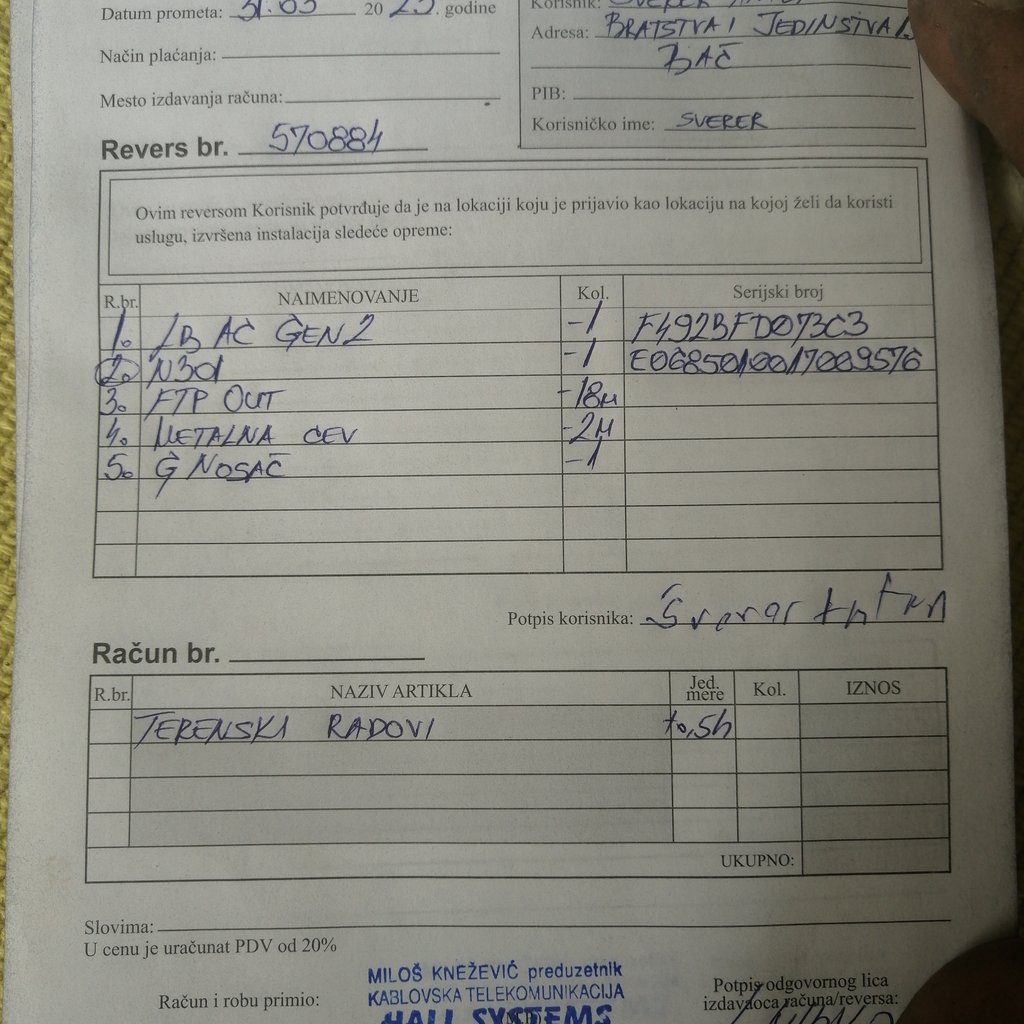 Datum prometa: 31.03 2025. godine
Korisnik: SVERER
Adresa: BRATSTVA I JEDINSTVA
Način plaćanja:
BAČ
Mesto izdavanja računa:
PIB:
Korisničko ime: SVERER
Revers br. 570884
Ovim reversom Korisnik potvrđuje da je na lokaciji koju je prijavio kao lokaciju na kojoj želi da koristi
uslugu, izvršena instalacija sledeće opreme:
R.br. NAIMENOVANJE Kol. Serijski broj
1. LB AC GEN2 -1 F492BFD073C3
2. N301 -1 E0685010017009576
3. FTP OUT -18M
4. METALNA CEV -2M
5. G NOSAČ -1
Potpis korisnika: Sverer Antun
Račun br.
R.br. NAZIV ARTIKLA Jed. mere Kol. IZNOS
TERENSKI RADOVI to,5h
UKUPNO:
Slovima:
U cenu je uračunat PDV od 20%
MILOŠ KNEŽEVIĆ preduzetnik
KABLOVSKA TELEKOMUNIKACIJA
HALL SYSTEMS
Račun i robu primio:
Potpis odgovornog lica
izdavaoca računa/reversa: